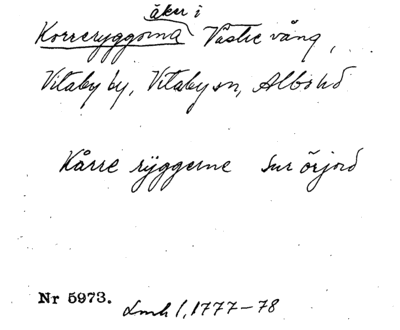 åker i
Korreryggorna Västre vång,
Vitaby by, Vitaby sn, Albo hd
Kårre rÿggerne sur örjord
Nr 5973. Lmh 1, 1777-78